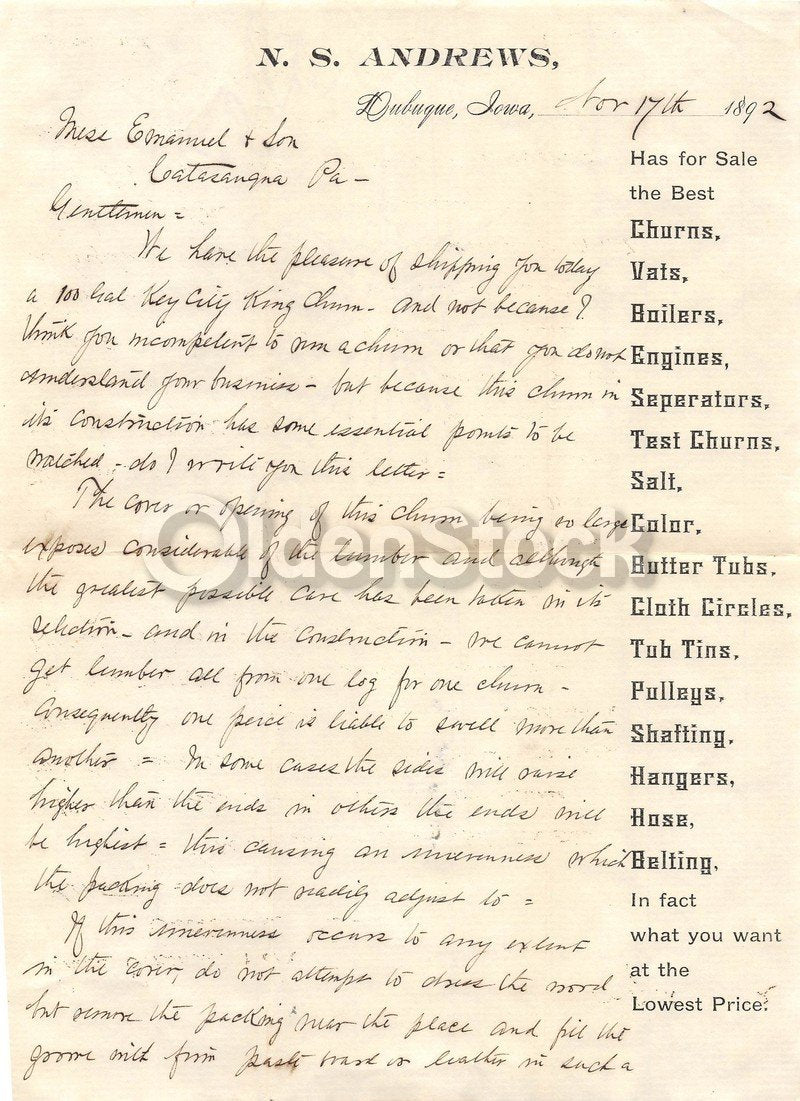 N. S. ANDREWS,
Dubuque, Iowa, Nov 17th 1892
Mess Emanuel & Son
Catasauqua Pa –
Gentlemen =
We have the pleasure of shipping you today
a 100 Gal Key City King Churn – and not because I
think you incompetent to run a churn or that you do not
understand your business – but because this churn in
its construction has some essential points to be
watched – do I write you this letter =
The cover or opening of this churn being so large
exposes considerable of the lumber and although
the greatest possible care has been taken in its
selection – and in the construction – we cannot
get lumber all from one log for one churn –
consequently one peice is liable to swell more than
another = In some cases the sides will raise
higher than the ends in others the ends will
be highest = this causing an unevenness which
the packing does not readily adjust to =
If this unevenness occurs to any extent
in the cover, do not attempt to dress the wood
but remove the packing near the place and fill the
groove with firm paste board or leather in such a
Has for Sale
the Best
Churns,
Vats,
Boilers,
Engines,
Seperators,
Test Churns,
Salt,
Color,
Butter Tubs,
Cloth Circles,
Tub Tins,
Pulleys,
Shafting,
Hangers,
Hose,
Belting,
In fact
what you want
at the
Lowest Price.
OldenStock